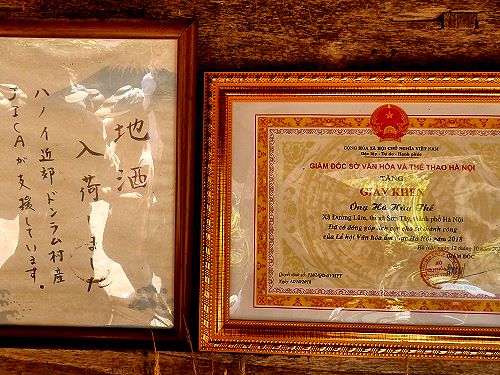 地酒
入荷しました
ハノイ近郊ドンラム村産
JICAが支援しています。
CỘNG HÒA XÃ HỘI CHỦ NGHĨA VIỆT NAM
Độc lập - Tự do - Hạnh phúc
GIÁM ĐỐC SỞ VĂN HÓA VÀ THỂ THAO HÀ NỘI
TẶNG
GIẤY KHEN
Ông Hà Hữu Thể
Xã Đường Lâm, thị xã Sơn Tây, thành phố Hà Nội
Đã có đóng góp tích cực cho sự thành công
của Lễ hội Văn hóa ẩm thực Hà Nội năm 2018
Hà Nội, ngày 12 tháng 10 năm
GIÁM ĐỐC
Quyết định số:
Ngày